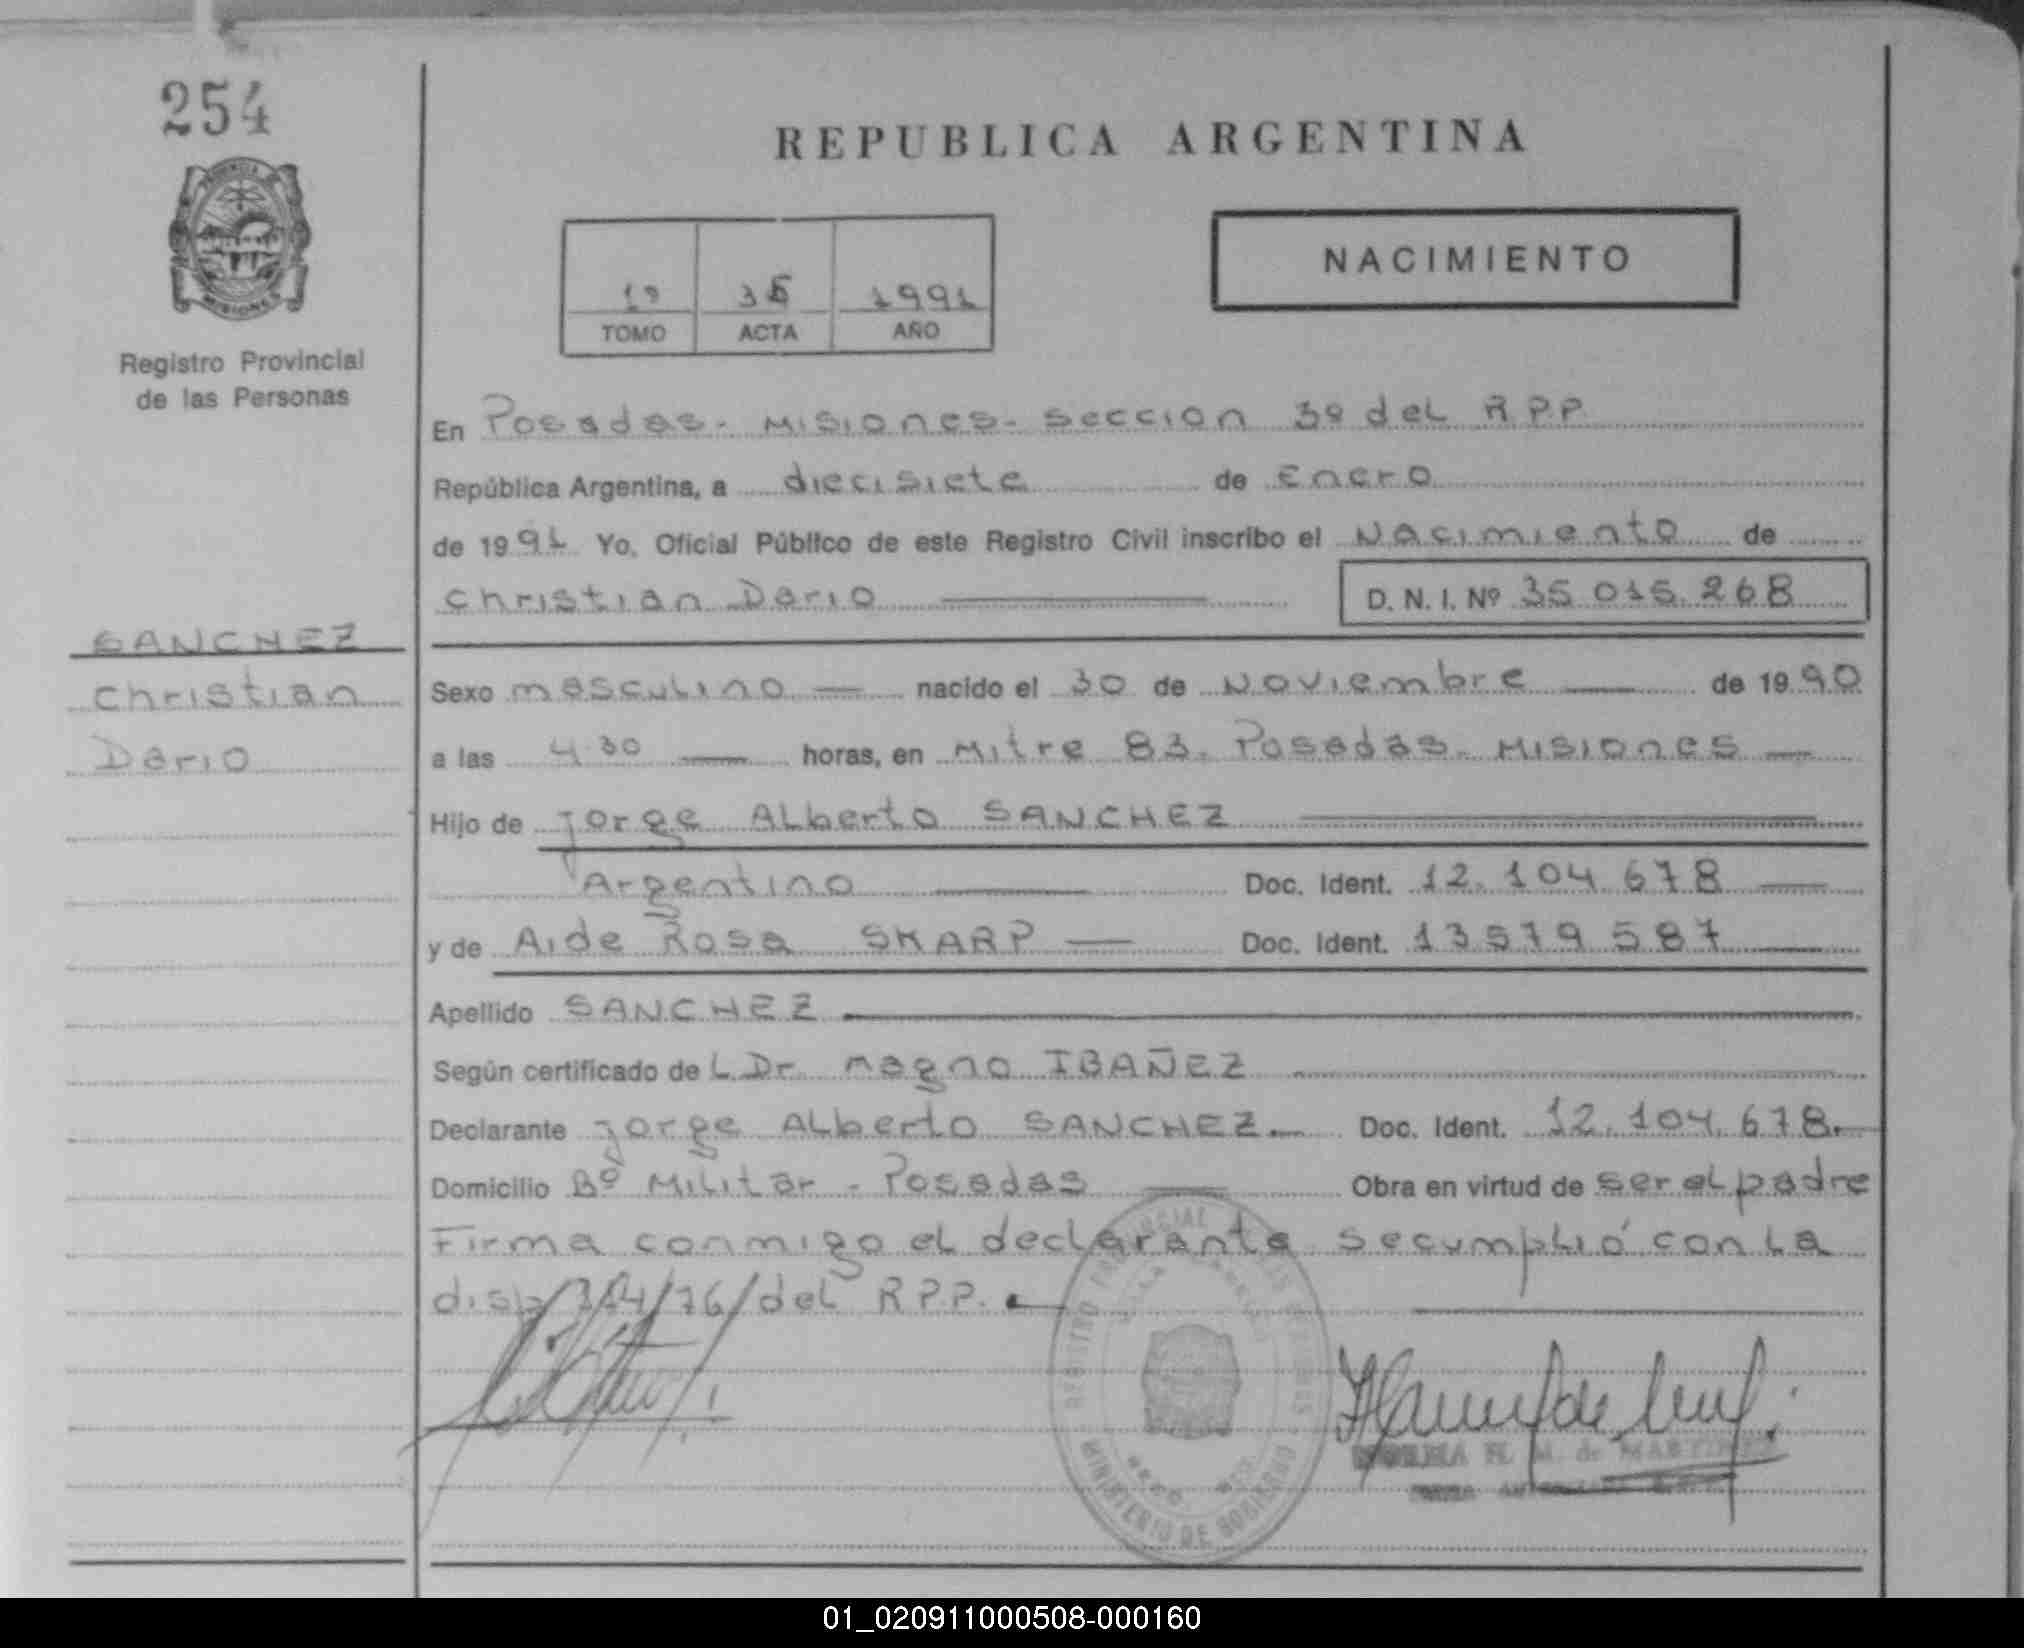 254
REPUBLICA ARGENTINA
PROVINCIA DE
MISIONES
NACIMIENTO
1º 36 1991
TOMO ACTA AÑO
Registro Provincial
de las Personas
En Posadas - Misiones - Seccion 3º del R.P.P.
República Argentina, a diecisiete de Enero
de 1991 Yo, Oficial Público de este Registro Civil inscribo el Nacimiento de
Christian Dario D. N. I. Nº 35 015.268
SANCHEZ
Christian
Dario
Sexo masculino — nacido el 30 de Noviembre — de 1990
a las 4.30 — horas, en Mitre 83. Posadas - Misiones —
Hijo de Jorge ALberto SANCHEZ
Argentino — Doc. Ident. 12.104.678 —
y de Aide Rosa SKARP — Doc. Ident. 13579587 —
Apellido SANCHEZ —
Según certificado de L Dr. Magno IBAÑEZ —
Declarante Jorge ALberto SANCHEZ.— Doc. Ident. 12.104.678.—
Domicilio Bº Militar - Posadas — Obra en virtud de ser el padre
Firma conmigo el declarante se cumplió con La
disp/ /76/del R.P.P. —
REGISTRO PROVINCIAL DE LAS PERSONAS
MINISTERIO DE GOBIERNO
NORMA H. M. de MARTINEZ
01_020911000508-000160